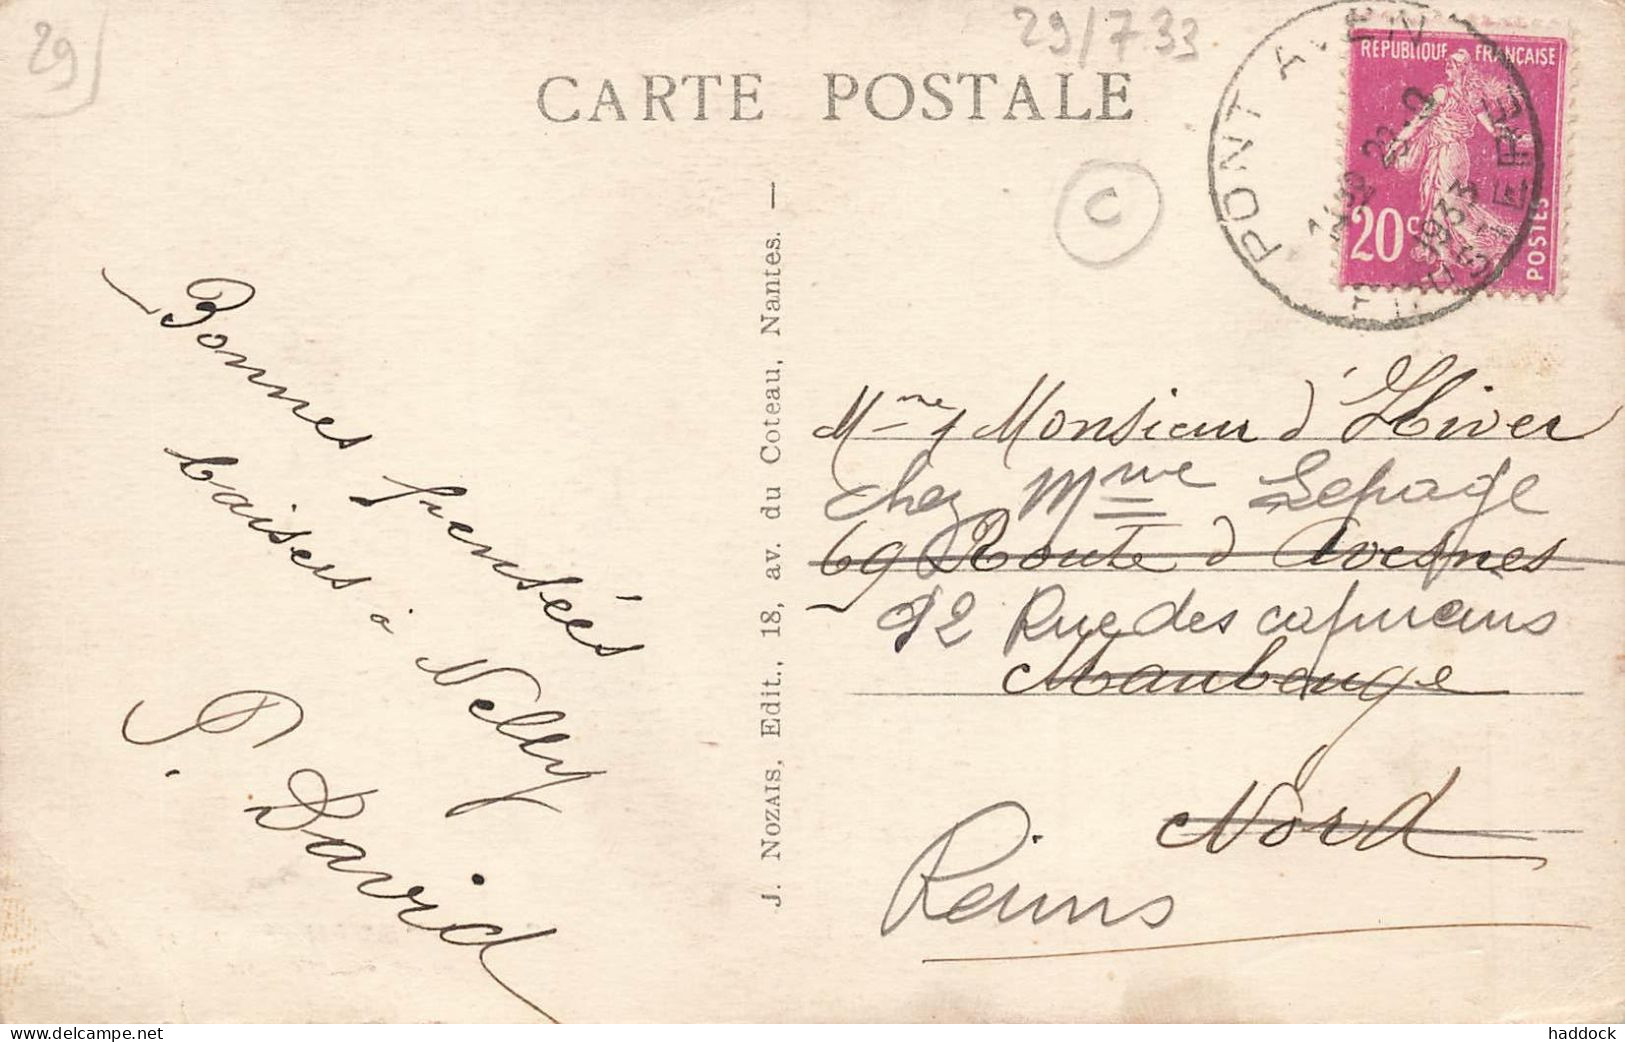 29
29/7 33
CARTE POSTALE
C
PONT AVEN
FINISTERE
1933
REPUBLIQUE FRANÇAISE
20c
POSTES
Bonnes pensées
baisers à Nelly
P. David
J. NOZAIS, Edit., 18, av. du Coteau, Nantes. —
Mme Monsieur d'Hiver
chez Mme Lepage
69 Route d'Avesnes
92 Rue des capucins
Maubeuge
Nord
Reims
Delcampe.net
haddock